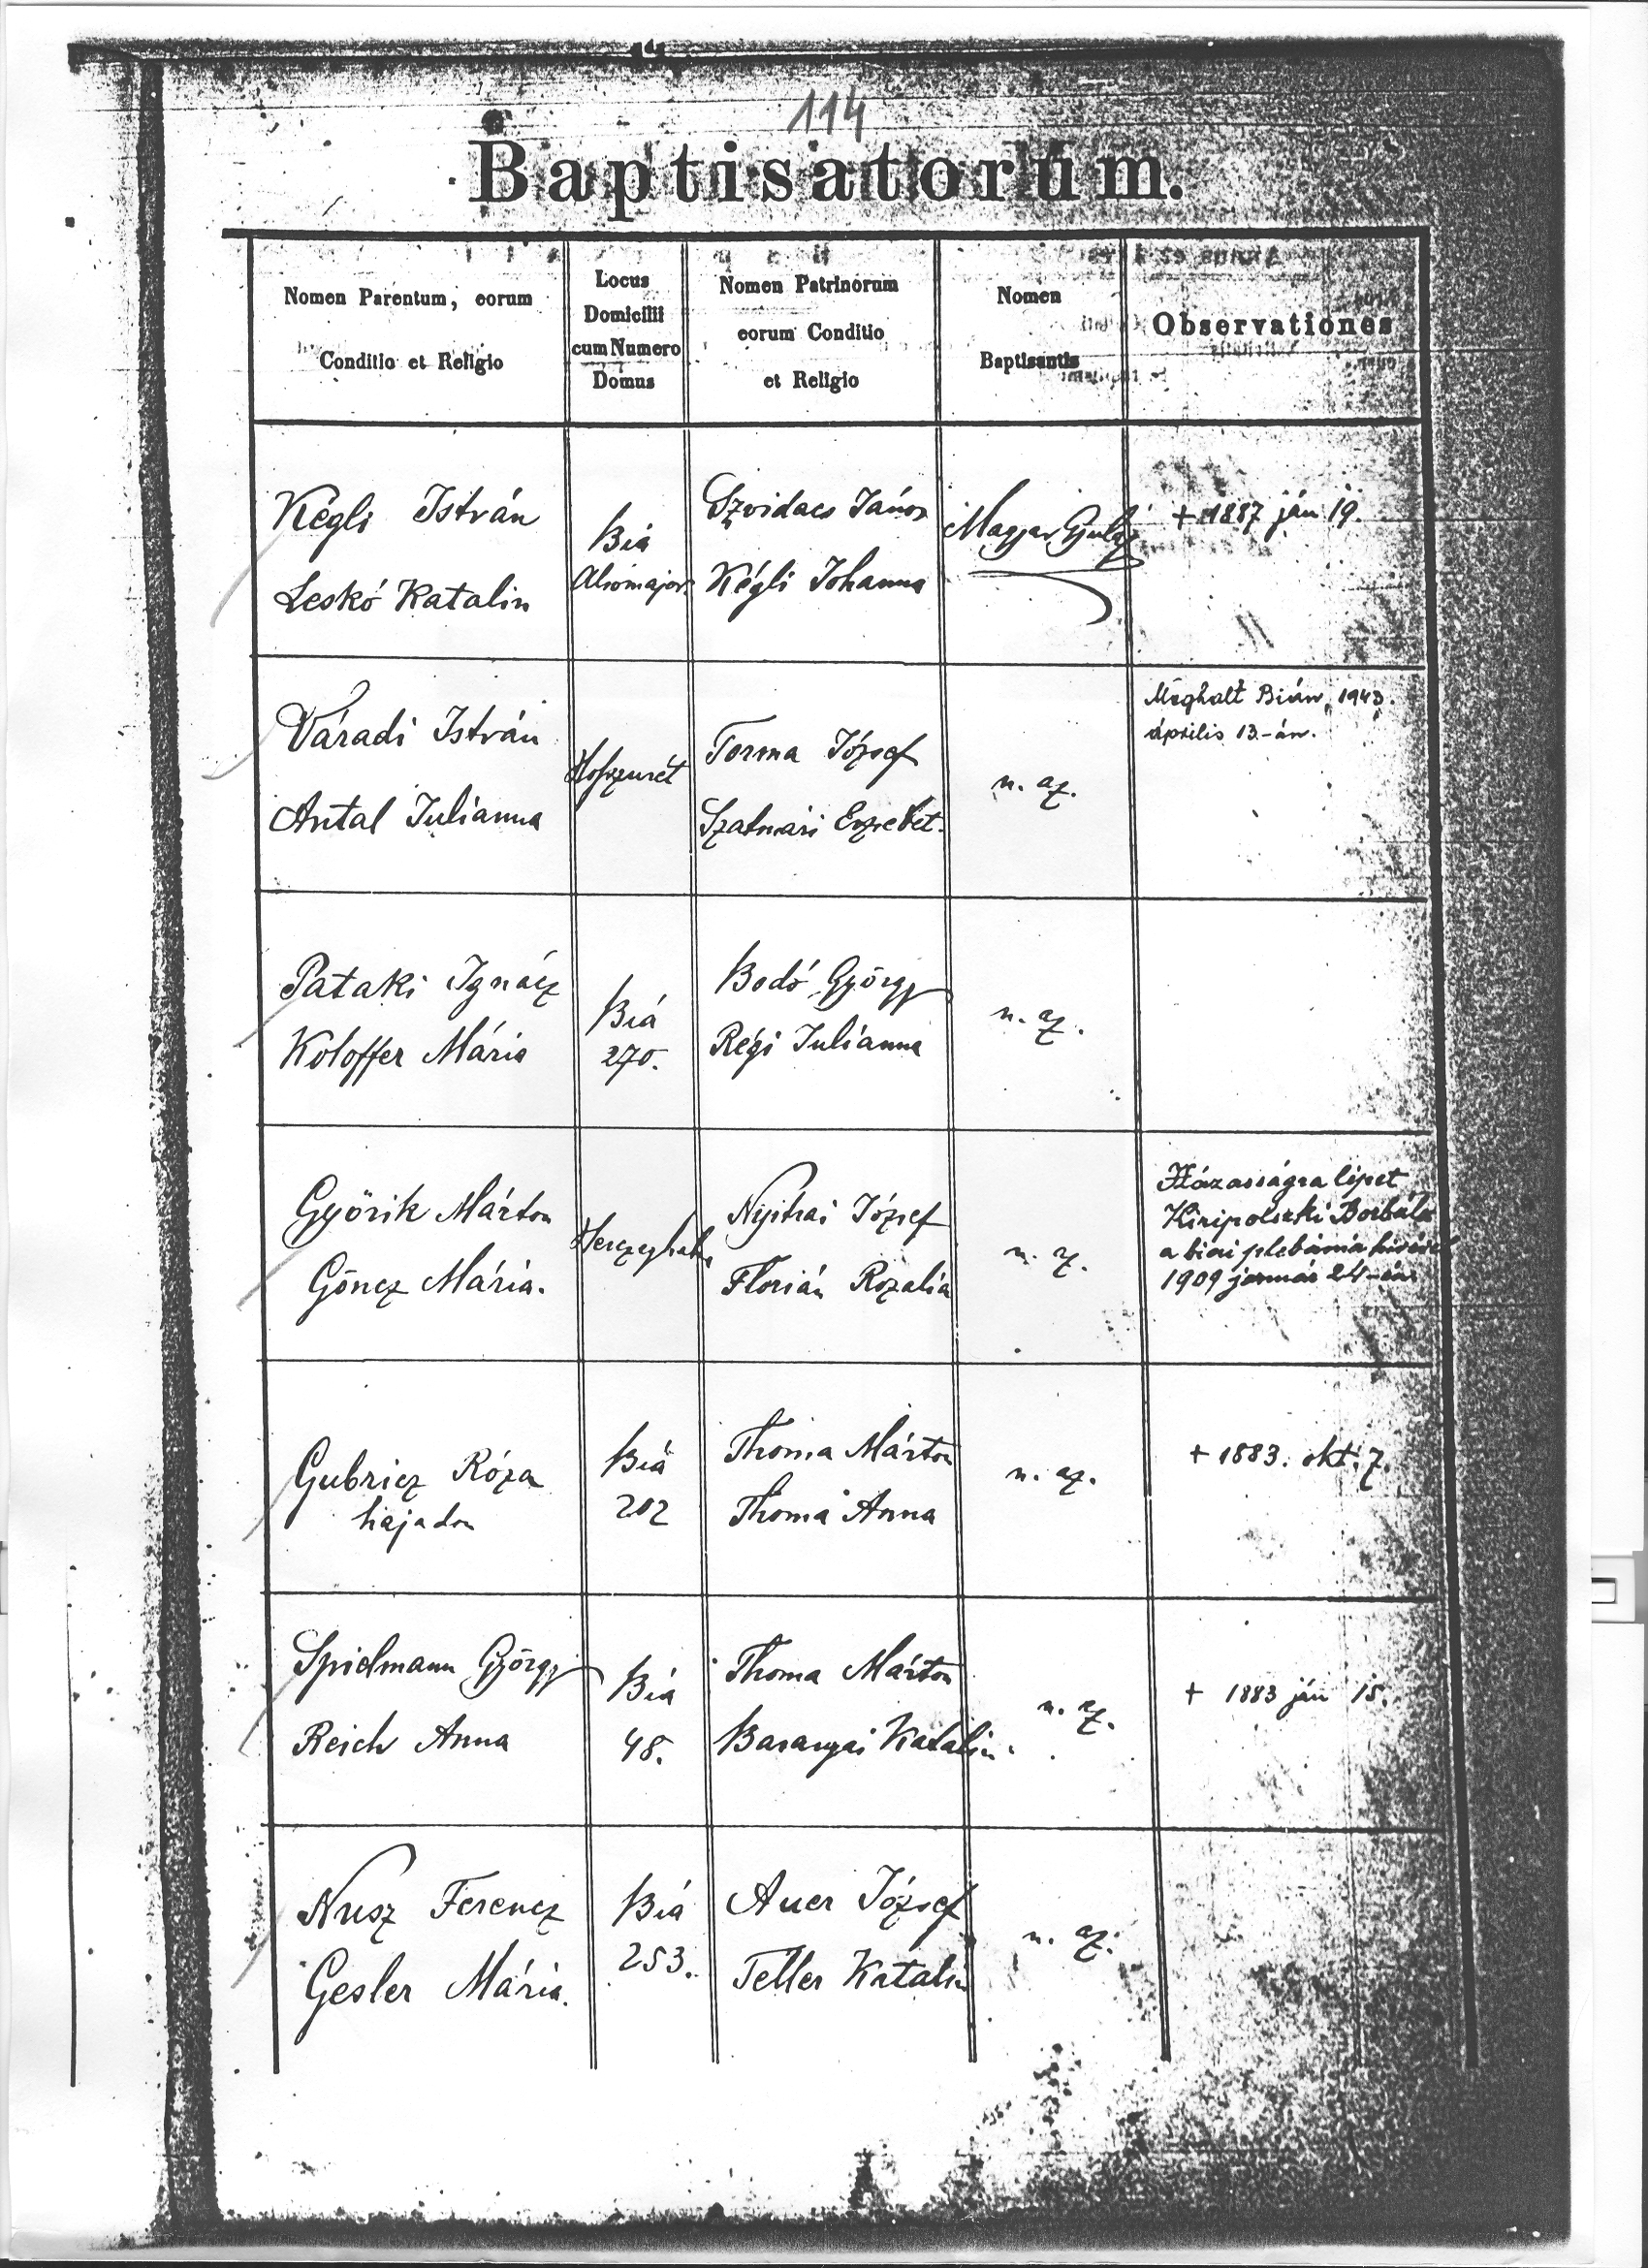 114
Baptisatorum.
Nomen Parentum, eorum
Conditio et Religio
Locus
Domicilii
cum Numero
Domus
Nomen Patrinorum
eorum Conditio
et Religio
Nomen
Baptisantis
Observationes
Kégli István
Leskó Katalin
Bia
Alsómajor
Szvidacs János
Kégli Johanna
Magyar Gyula
+ 1887 ján 19.
Váradi István
Antal Julianna
Torma József
Szatmári Erzsebet.
n. az.
Meghalt Bián, 1943.
április 13-án.
Pataki Ignácz
Koloffer Mária
Biá
270.
Bodó György
Régi Julianna
n. az.
Györik Márton
Göncz Mária.
Herczeghalm
Nyitrai József
Florián Rozalia
n. az.
Házasságra lépet
Kiripolszki Borbála
a biai plebánia
1909 január 24-én
Gubricz Róza
hajadon
Biá
202
Thoma Márton
Thoma Anna
n. az.
+ 1883. okt. 7.
Spielmann György
Reich Anna
Bia
48.
Thoma Márton
Baranyai Katalin.
n. az.
+ 1883 ján 15.
Nusz Ferencz
Gesler Mária.
Biá
253.
Auer József
Teller Katalin
n. az.